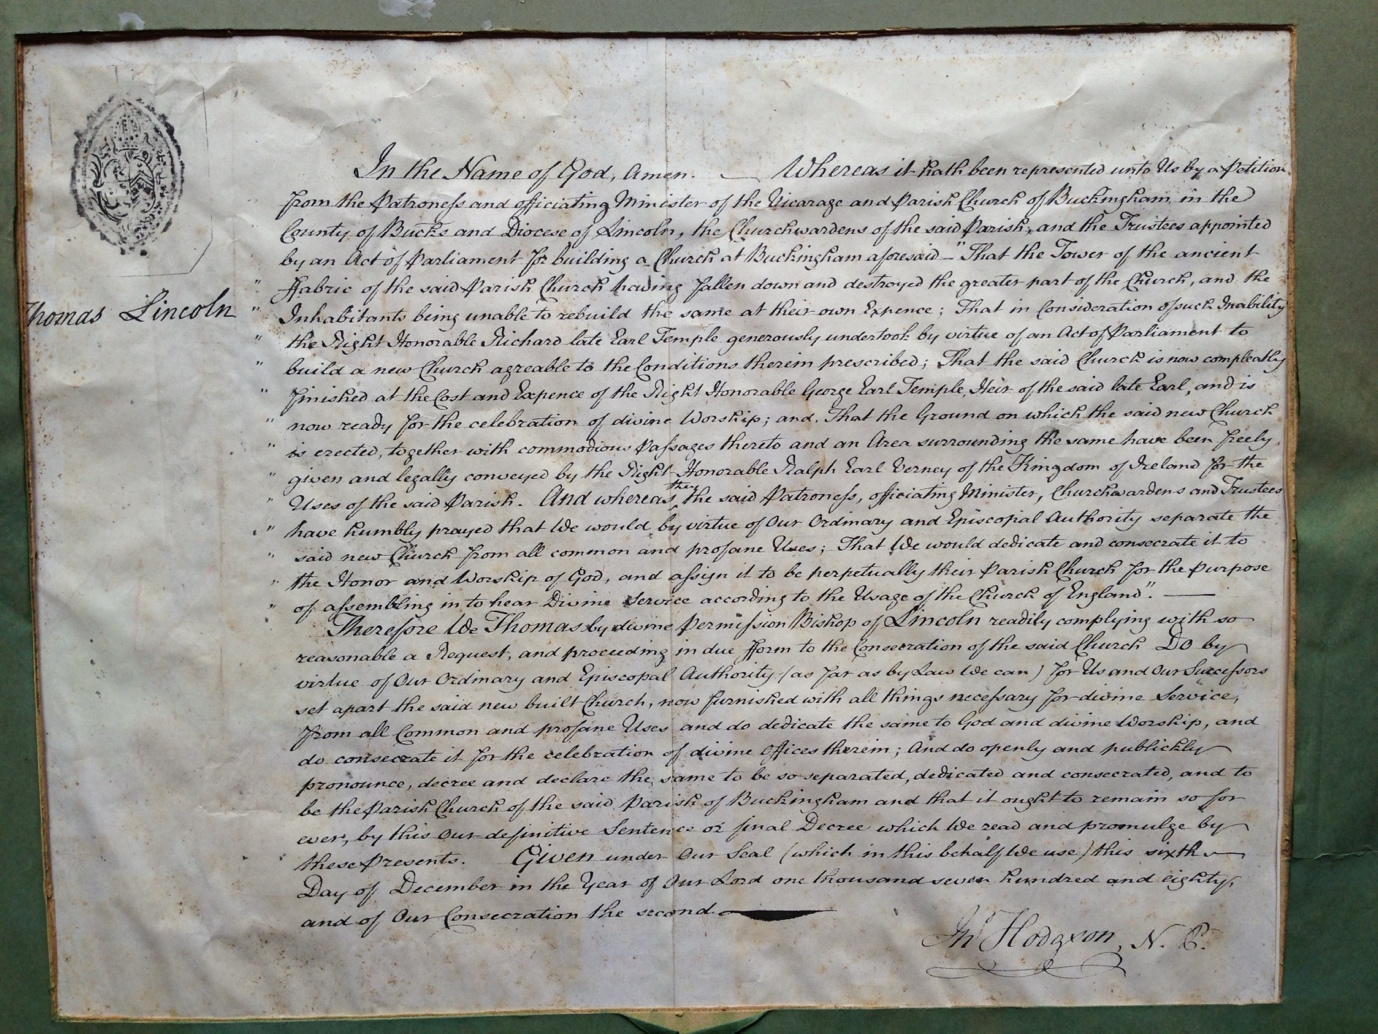 In the Name of God, Amen. — Whereas it hath been represented unto Us by a Petition
from the Patroness and officiating Minister of the Vicarage and Parish Church of Buckingham in the
County of Bucks and Diocese of Lincoln, the Churchwardens of the said Parish, and the Trustees appointed
by an Act of Parliament for building a Church at Buckingham aforesaid — "That the Tower of the ancient
" ffabric of the said Parish Church having fallen down and destroyed the greater part of the Church, and the
Thomas Lincoln
" Inhabitants being unable to rebuild the same at their own Expence; That in Consideration of such Inability
" the Right Honorable Richard late Earl Temple generously undertook by virtue of an Act of Parliament to
" build a new Church agreable to the Conditions therein prescribed; That the said Church is now compleatly
" finished at the Cost and Expence of the Right Honorable George Earl Temple, Heir of the said late Earl, and is
" now ready for the celebration of divine Worship; and, That the Ground on which the said new Church
" is erected, together with commodious Passages thereto and an Area surrounding the same have been freely
" given and legally conveyed by the Right Honorable Ralph Earl Verney of the Kingdom of Ireland for the
" Uses of the said Parish. And whereas they the said Patroness, officiating Minister, Churchwardens and Trustees
" have humbly prayed that We would by virtue of Our Ordinary and Episcopal Authority separate the
" said new Church from all common and profane Uses; That We would dedicate and consecrate it to
" the Honor and Worship of God, and assign it to be perpetually their Parish Church for the purpose
" of assembling in to hear Divine Service according to the Usage of the Church of England". —
Therefore We Thomas by divine Permission Bishop of Lincoln readily complying with so
reasonable a Request, and proceeding in due fform to the Consecration of the said Church Do by
virtue of Our Ordinary and Episcopal Authority (as far as by Law We can) for Us and Our Successors
set apart the said new built Church, now furnished with all things necessary for divine Service,
from all Common and profane Uses and do dedicate the same to God and divine Worship, and
do consecrate it for the celebration of divine Offices therein; And do openly and publickly
pronounce, decree and declare the same to be so separated, dedicated and consecrated, and to
be the Parish Church of the said Parish of Buckingham and that it ought to remain so for
ever, by this Our definitive Sentence or final Decree which We read and promulge by
these Presents. Given under Our Seal (which in this behalf We use) this sixth
Day of December in the Year of Our Lord one thousand seven hundred and eighty,
and of Our Consecration the second.
Jnº Hodgson, N. P.